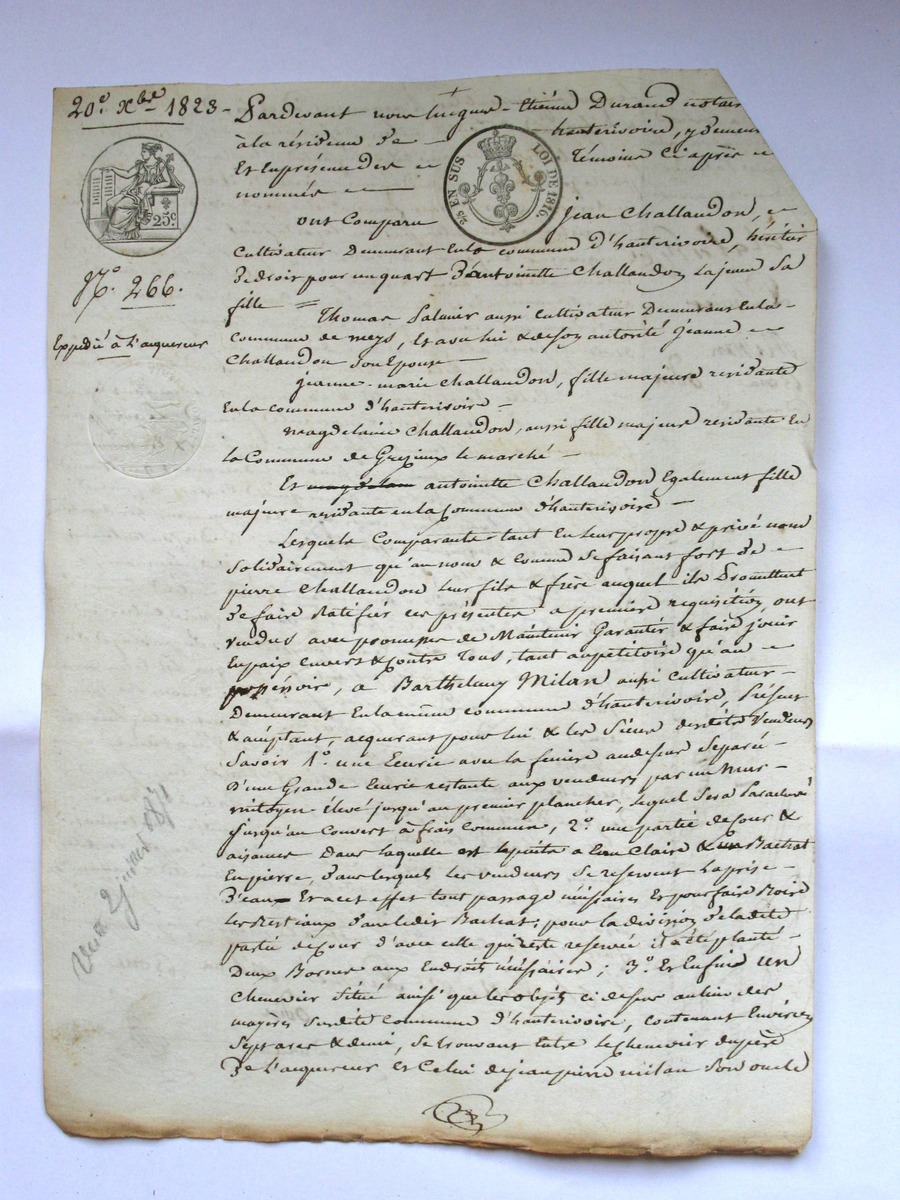 20e Xbre 1823 -
Pardevant nous luques - Etienne Durand notai
à la résidence de hauterivoire, y demeur
Et En présence des témoins Ci après
nommés
25c.
25 EN SUS LOI DE 1816.
ont Comparu Jean Challandon,
Cultivateur Demeurant En la commune d'hauterivoire, héritier
De droit pour un quart d'antoinette Challandon La jeune Sa
fille =
N.o 266.
Expédié à l'acquereur
Thomas Salmier aussi Cultivateur Demeurant En la
Commune de meys, Et avec lui & de son autorité Jeanne
Challandon Son Epouse -
jeanne-marie Challandon, fille majeure residante
En la commune d'hauterivoire -
magdelaine Challandon, aussi fille majeure residante En
la Commune de Grezieux le marché -
Et antoinette Challandon Egalement fille
majeure residante en la Commune d'hauterivoire -
Lesquels Comparants tant En leur propre & privé nom
Solidairement qu'au nom & comme Se faisant fort De
pierre Challandon leur fils & frère auquel ils promettent
De faire Ratifier ces présentes a première requisition, ont
vendus avec promesses de Maintenir Garantir & faire jouir
En paix Envers & Contre Tous, tant au pétitoire qu'au
possessoire, a Barthelemy Milan aussi Cultivateur -
Demeurant En la même commune d'hauterivoire, Présent
& acceptant, acquerant pour lui & les Siens desdits Vendeurs
Savoir 1o. une Ecurie avec la feniere au dessus Séparée -
D'une Grande Ecurie restante aux vendeurs par un mur -
mitoyen élevé jusqu'au premier plancher, lequel Sera
jusqu'au Couvert à frais Communs, 2o. une partie de Cour &
aisances Dans laquelle est le puits a Eau Claire & un Bachat
En pierre, dans lesquels les vendeurs Se reservent la prise
D'eau Et a cet effet tout passage nécessaires Et pour faire Boire
les Bestiaux dans ledit Bachat; pour la division de ladite
partie de Cour d'avec celle qui reste reservée il a été planté -
Deux Bornes aux Endroits nécessaires; 3o. Et Enfin un
Chenevier Situé ainsi que les objets ci dessus au lieu des
mayères Susdite Commune d'hauterivoire, Contenant Environ
Sept ares & demi, Se trouvant Entre le Chenevier du père
De l'acquereur et Celui de jean pierre milan Son oncle